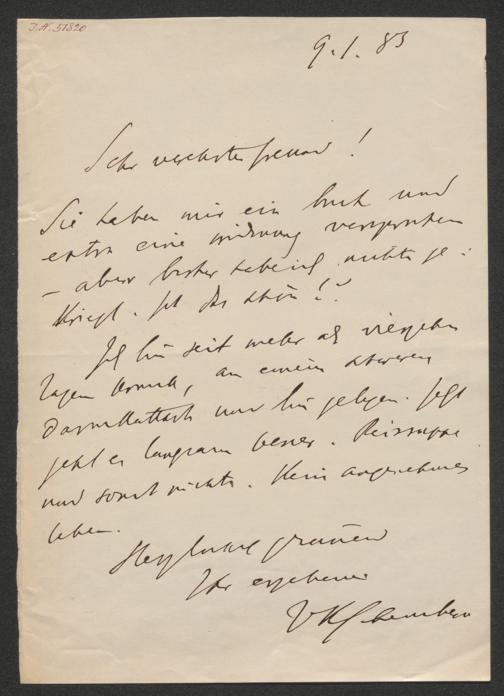 J.N. 51820
9.1.83
Sehr verehrter freund!
Sie haben mir ein buch und
extra eine widmung versprochen
– aber bisher habe ich nichts ge-
kriegt. Ist das schön!?
Ich bin seit mehr als vierzehn
tagen krank, an einem schweren
Darmkattarh und bin gelegen. Jetzt
geht es langsam besser. Reissuppe
und sonst nichts. Kein angenehmes
leben.
Herzlichst grüssend
Ihr ergebener